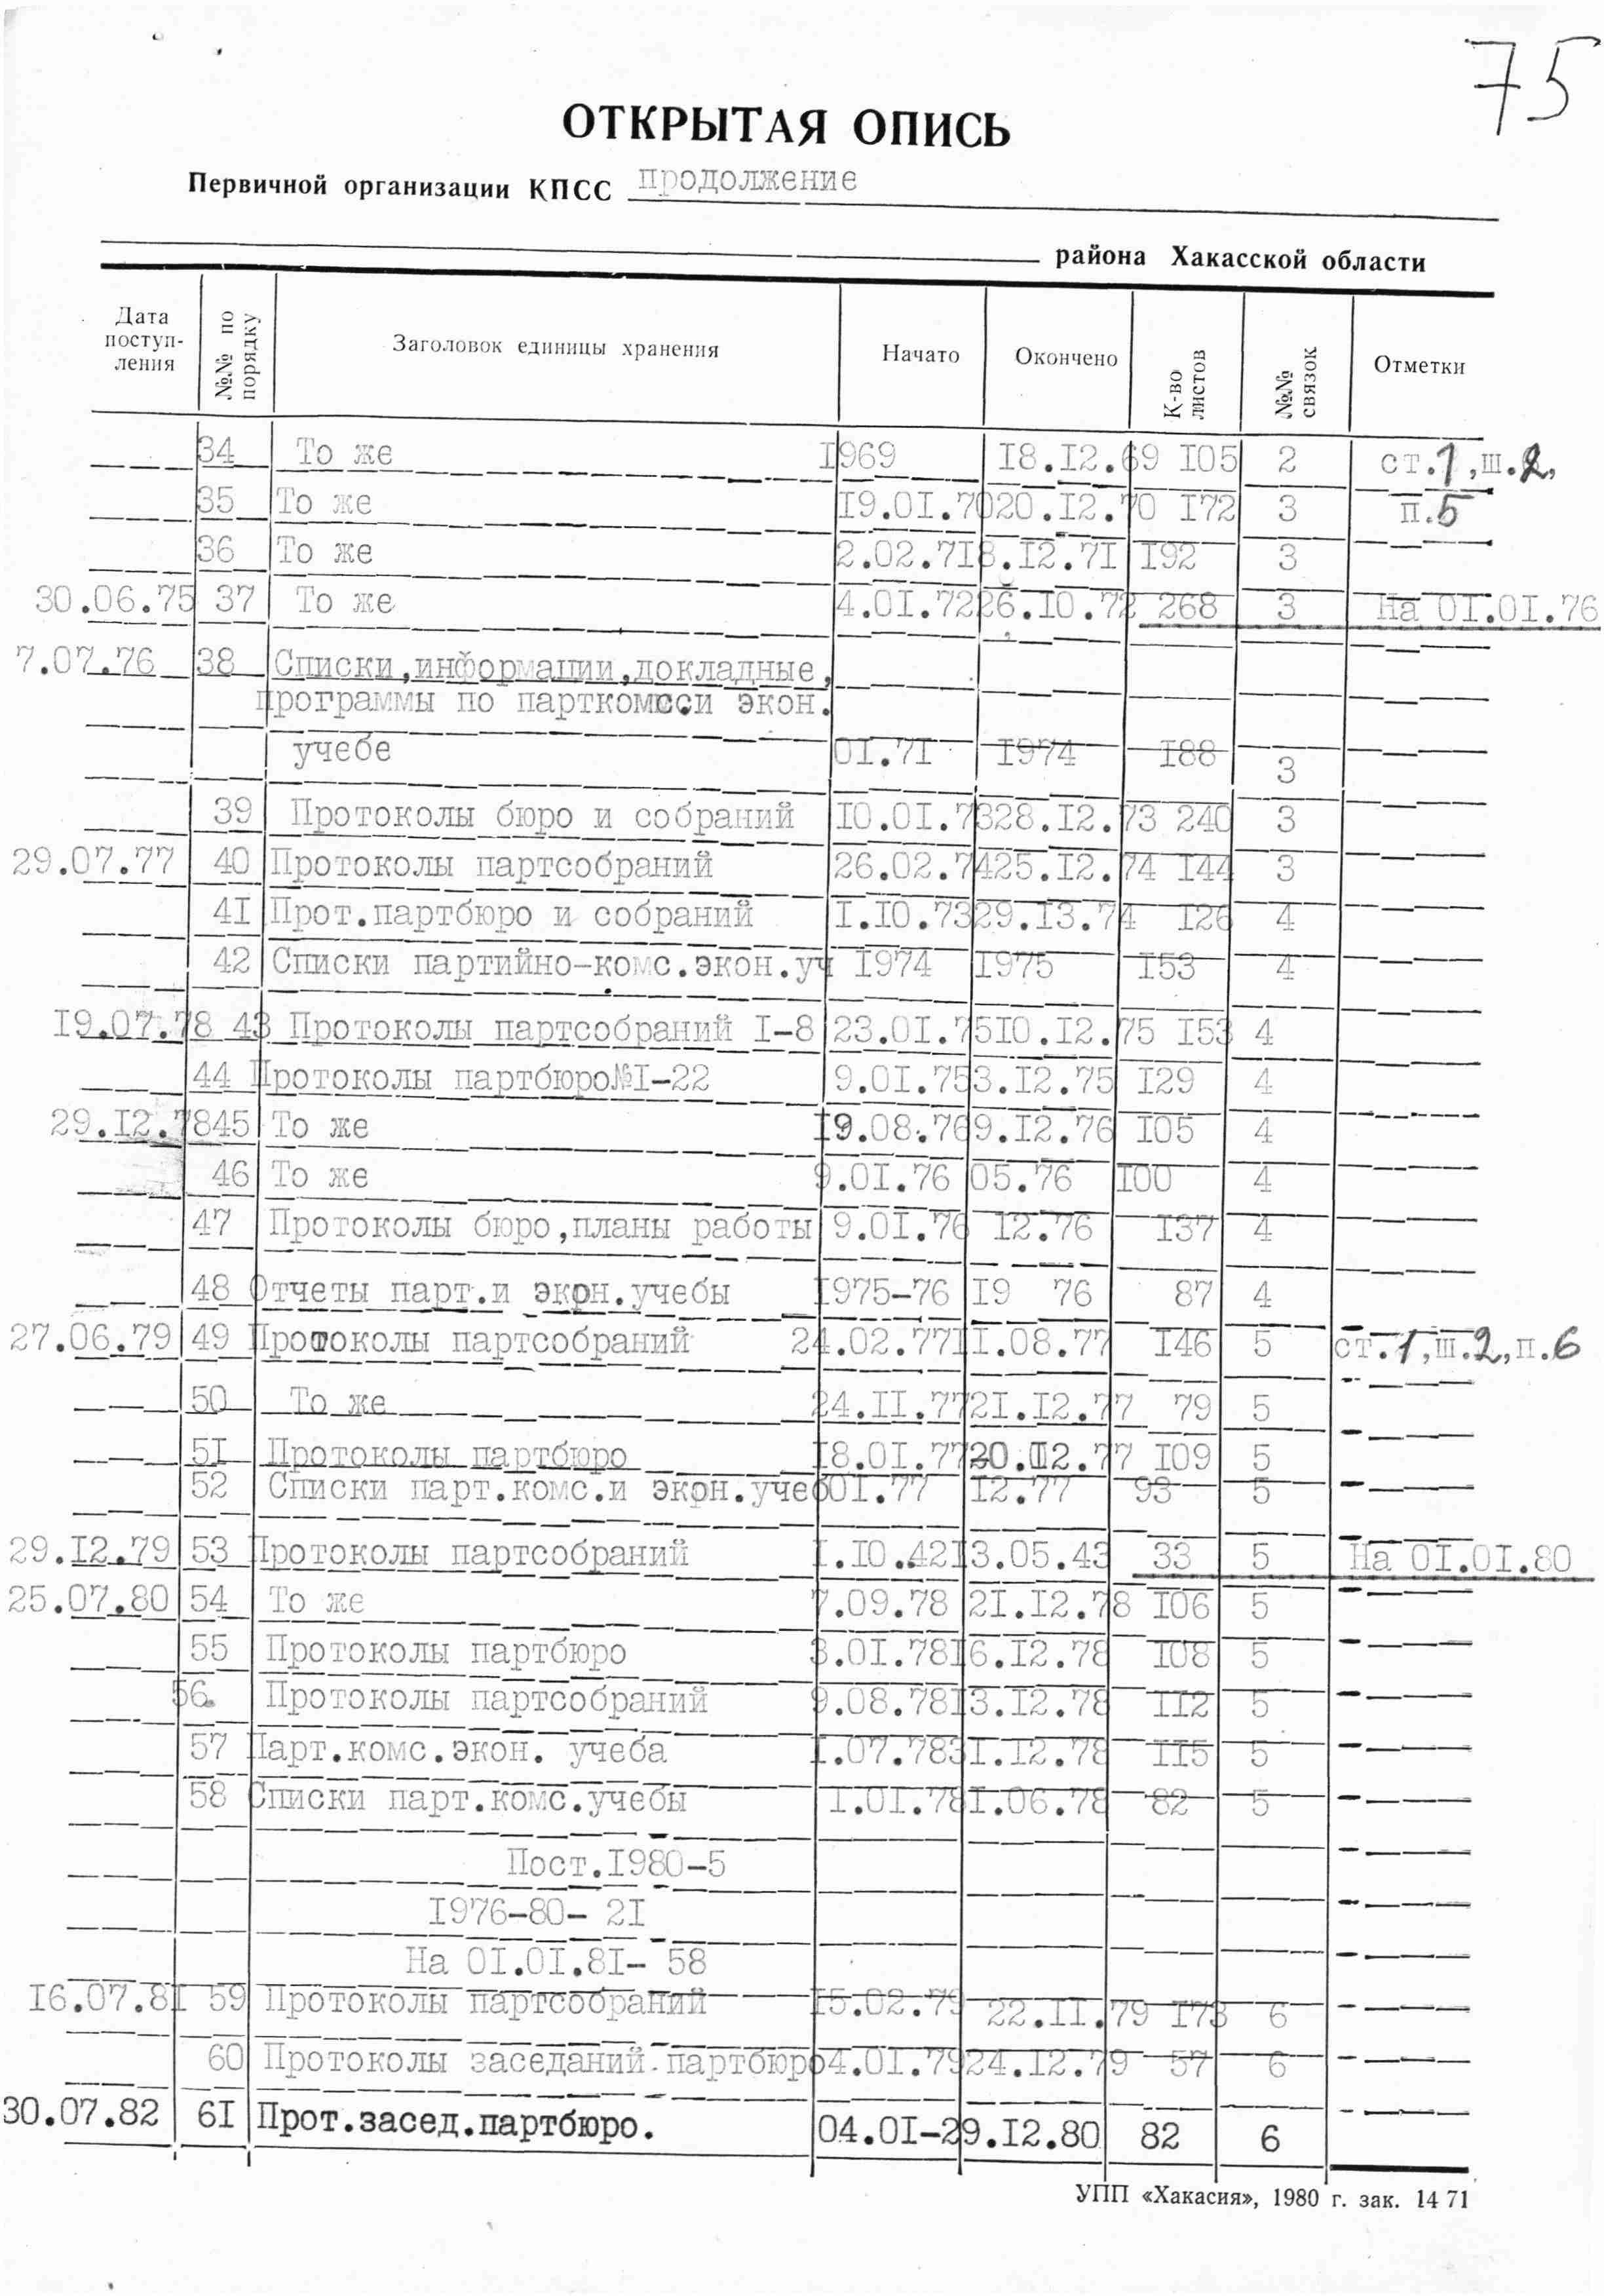 75
ОТКРЫТАЯ ОПИСЬ
Первичной организации КПСС продолжение
района Хакасской области
Дата поступ- ления №№ по порядку Заголовок единицы хранения Начато Окончено К-во листов №№ связок Отметки
34 То же 1969 18.12.69 105 2 ст.1,ш.2,
35 То же 19.01.70 20.12.70 172 3 п.5
36 То же 2.02.71 8.12.71 192 3
30.06.75 37 То же 4.01.72 26.10.72 268 3 На 01.01.76
7.07.76 38 Списки,информации,докладные,
программы по парткомсси экон.
учебе 01.71 1974 188 3
39 Протоколы бюро и собраний 10.01.73 28.12.73 240 3
29.07.77 40 Протоколы партсобраний 26.02.74 25.12.74 144 3
41 Прот.партбюро и собраний 1.10.73 29.13.74 126 4
42 Списки партийно-комс.экон.уч 1974 1975 153 4
19.07.78 43 Протоколы партсобраний 1-8 23.01.75 10.12.75 153 4
44 Протоколы партбюро№1-22 9.01.75 3.12.75 129 4
29.12.78 45 То же 19.08.76 9.12.76 105 4
46 То же 9.01.76 05.76 100 4
47 Протоколы бюро,планы работы 9.01.76 12.76 137 4
48 Отчеты парт.и экон.учебы 1975-76 19 76 87 4
27.06.79 49 Протоколы партсобраний 24.02.77 11.08.77 146 5 ст.1,ш.2,п.6
50 То же 24.11.77 21.12.77 79 5
51 Протоколы партбюро 18.01.77 20.12.77 109 5
52 Списки парт.комс.и экон.учеб 01.77 12.77 93 5
29.12.79 53 Протоколы партсобраний 1.10.42 13.05.43 33 5 На 01.01.80
25.07.80 54 То же 7.09.78 21.12.78 106 5
55 Протоколы партбюро 3.01.78 16.12.78 108 5
56. Протоколы партсобраний 9.08.78 13.12.78 112 5
57 Парт.комс.экон. учеба 1.07.78 31.12.78 115 5
58 Списки парт.комс.учебы 1.01.78 1.06.78 82 5
Пост.1980-5
1976-80- 21
На 01.01.81- 58
16.07.81 59 Протоколы партсобраний 15.02.79 22.11.79 173 6
60 Протоколы заседаний партбюро 4.01.79 24.12.79 57 6
30.07.82 61 Прот.засед.партбюро. 04.01-29.12.80 82 6
УПП «Хакасия», 1980 г. зак. 1471